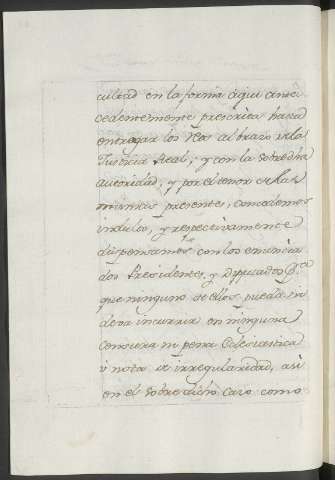 cultad en la forma aqui ante-
cedentemente prescrita hasta
entregar los Reos al brazo de la
Justicia Real; y con la sobredha
autoridad, y por el tenor de las
mismas presentes, concedemos
indulto, y respectivamente
dispensamos con los enuncia-
dos Presidentes, y Diputados pa.
que ninguno de ellos pueda ni
deva incurrir en ninguna
Censura ni pena Eclesiastica
ò nota de irregularidad, asi
en el sobre dicho Caso como